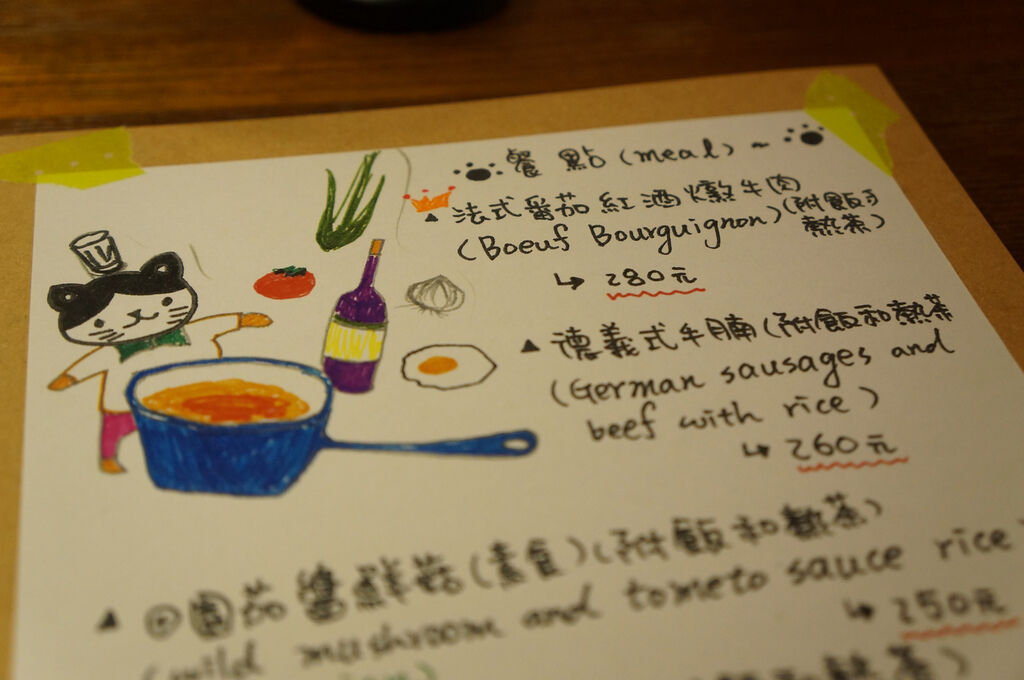 餐點(meal)~
法式番茄紅酒燉牛肉(附飯和
(Boeuf Bourguignon) 熱茶)
↳ 280元
▲德義式牛腩(附飯和熱茶
(German sausages and
beef with rice)
↳ 260元
茄醬鮮菇(素食)(附飯和熱茶)
(wild mushroom and tometo sauce rice
↳ 250元